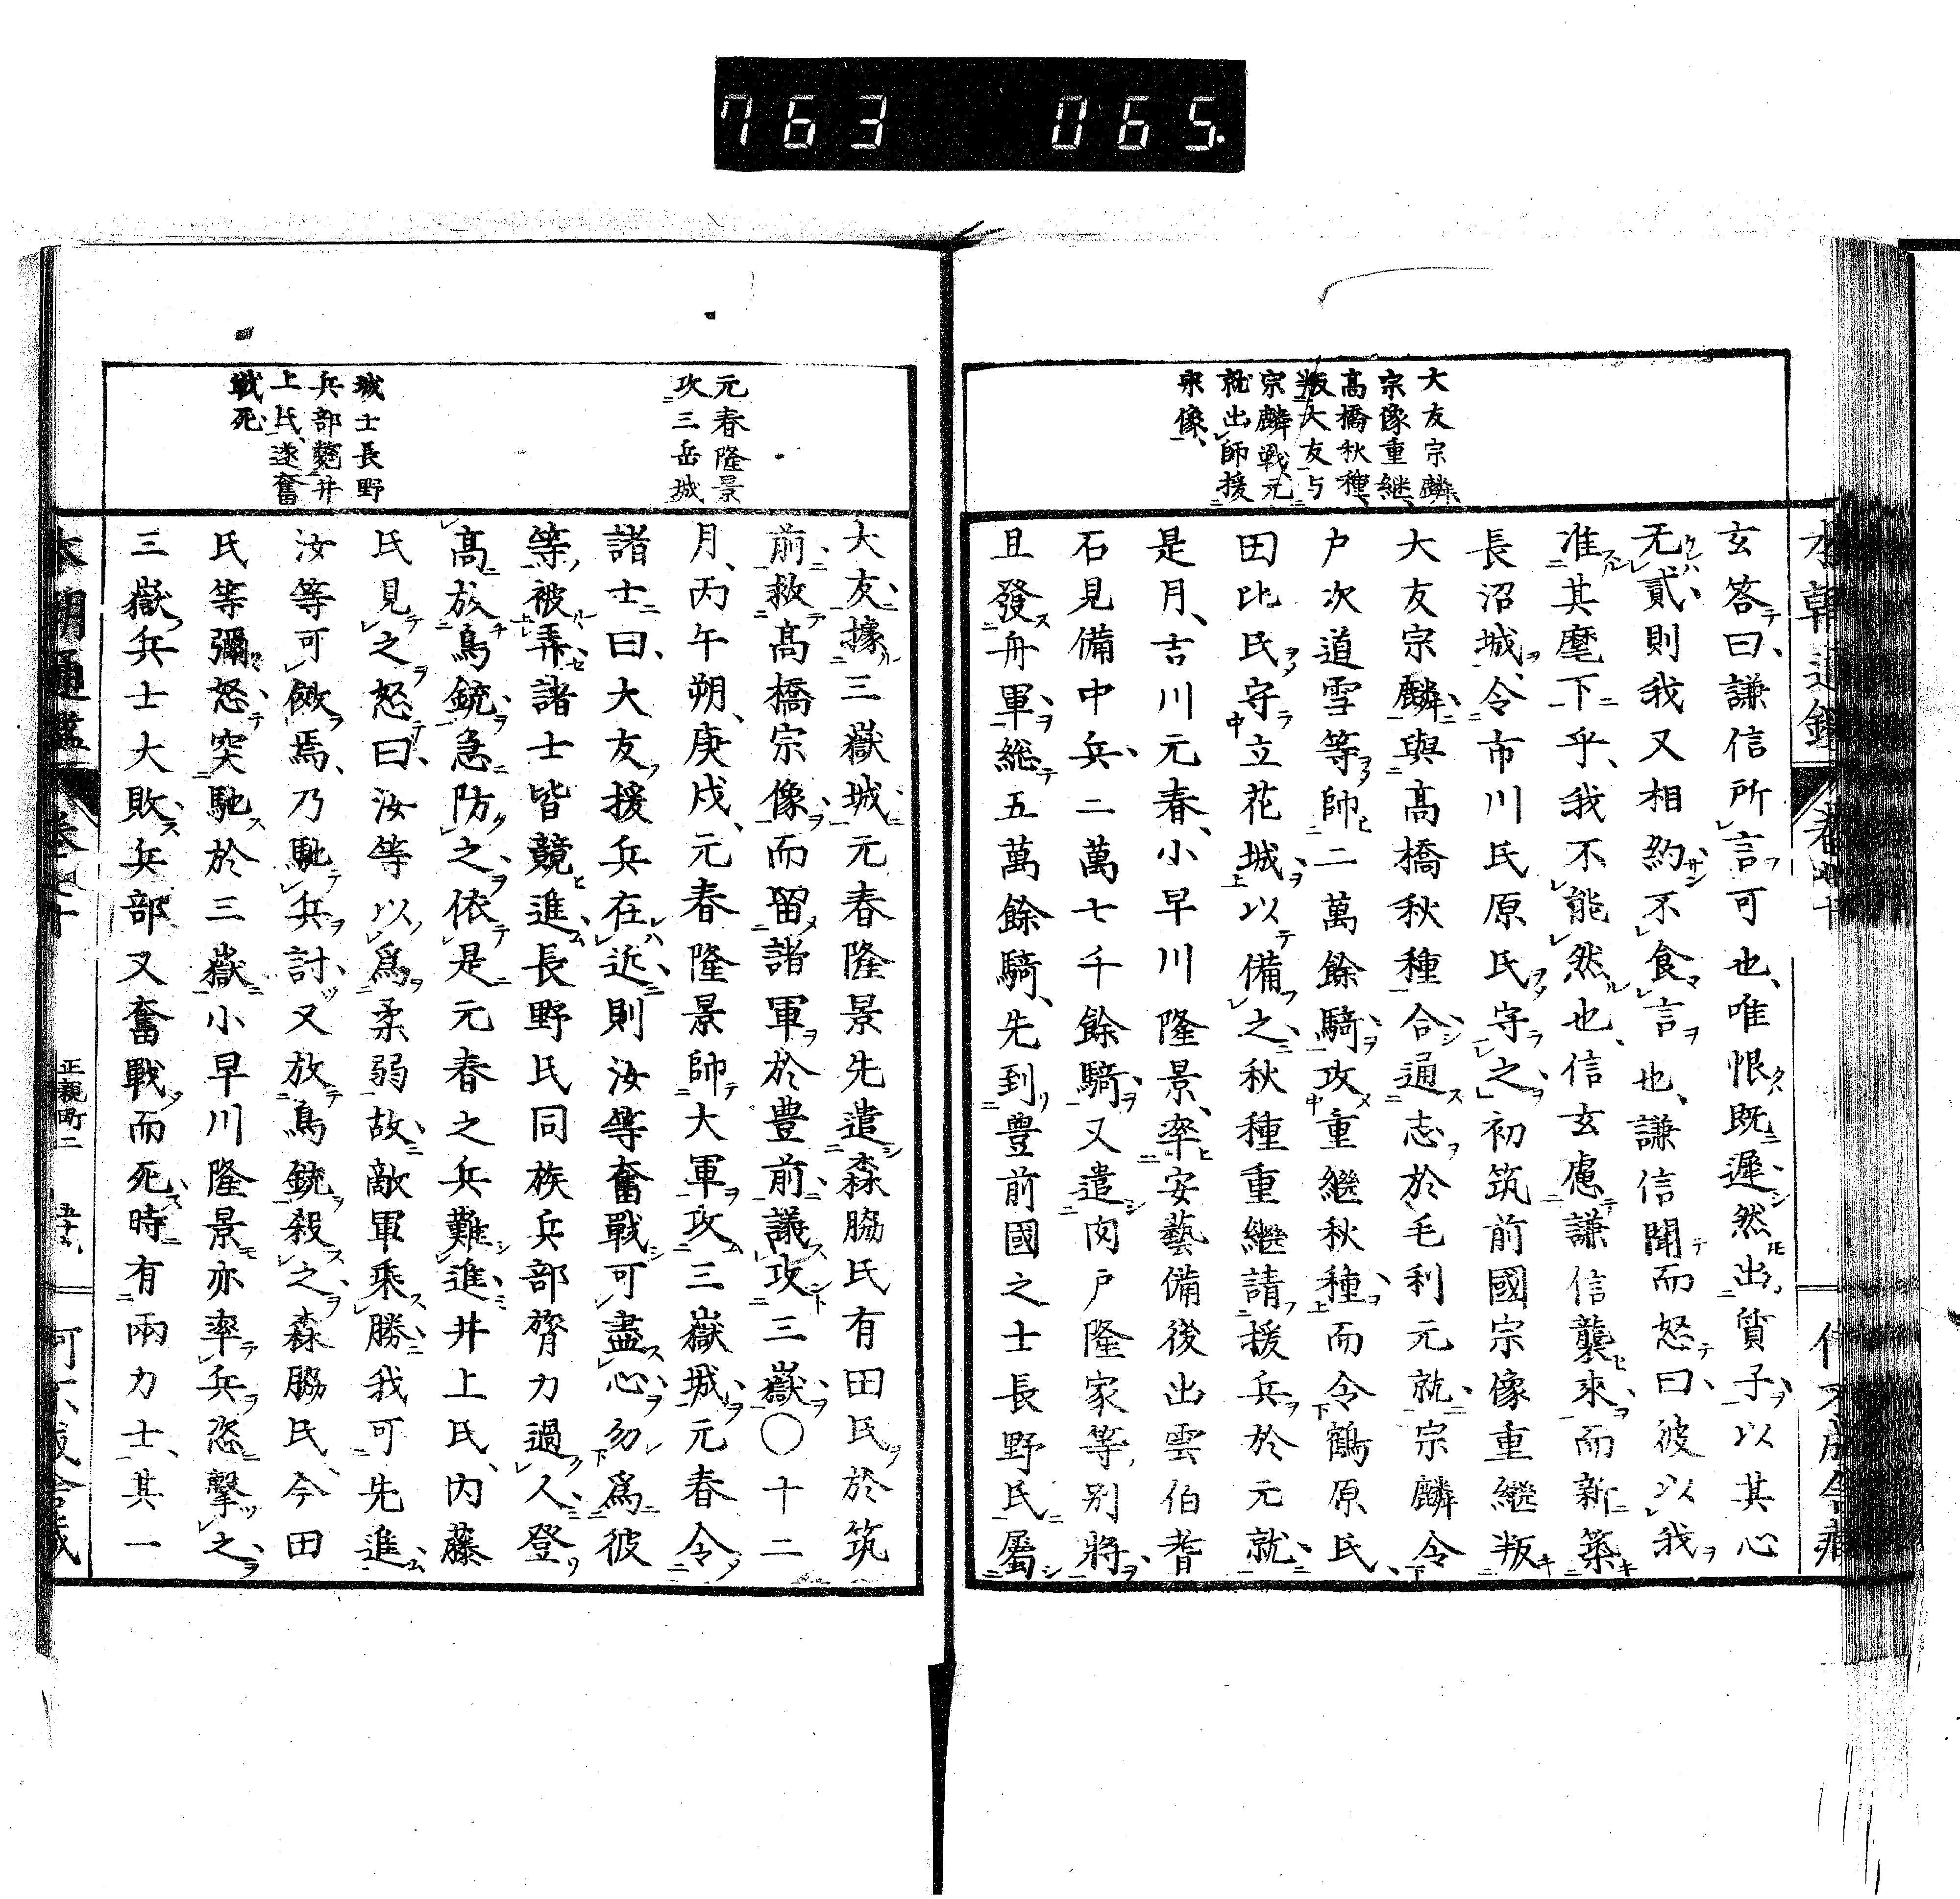 763 065.
大友宗麟
宗像重継
高橋秋種
叛大友与
宗麟戰元
就出師援
宗像
玄答曰謙信所言可也唯恨既遲然出質子以其心
无貳則我又相約不食言也謙信聞而怒曰彼以我
准其麾下乎我不能然也信玄慮謙信襲來而新築
長沼城令市川氏原氏守之初筑前國宗像重継叛
大友宗麟與高橋秋種合通志於毛利元就宗麟令
戸次道雪等帥二萬餘騎攻重継秋種而令鶴原氏
田北氏守立花城以備之秋種重継請援兵於元就
是月吉川元春小早川隆景率安藝備後出雲伯耆
石見備中兵二萬七千餘騎又遣宍戸隆家等別將
且發舟軍総五萬餘騎先到豊前國之士長野氏屬
元春隆景
攻三岳城
城士長野
兵部斃井
上氏遂奮
戰死
大友據三嶽城元春隆景先遣森脇氏有田氏於筑
前救高橋宗像而留諸軍於豊前議攻三嶽〇十二
月丙午朔庚戌元春隆景帥大軍攻三嶽城元春令
諸士曰大友援兵在近則汝等奮戰可盡心勿爲彼
等被弄諸士皆競進長野氏同族兵部膂力過人登
高放鳥銃急防之依是元春之兵難進井上氏內藤
氏見之怒曰汝等以爲柔弱故敵軍乘勝我可先進
汝等可傚焉乃馳兵討又放鳥銃殺之森脇氏今田
氏等彌怒突馳於三嶽小早川隆景亦率兵恣擊之
三嶽兵士大敗兵部又奮戰而死時有兩力士其一
本朝通鑑 正親町二